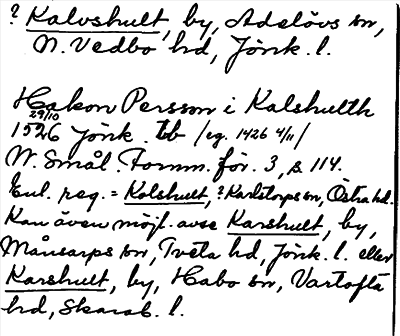 ? Kalvshult, by, Adelövs sn,
N. Vedbo hd, Jönk. l.
Hakon Persson i Kalshulth
29/10
1526 Jönk. tb /eg. 1426 4/11/
N. Smål. Fornm. för. 3, s 114.
Enl. reg. = Kolshult, ? Karlstorps sn, Östra hd.
Kan även möjl. avse Karshult, by,
Månsarps sn, Tveta hd, Jönk. l. eller
Karshult, by, Habo sn, Vartofta
hd, Skarab. l.